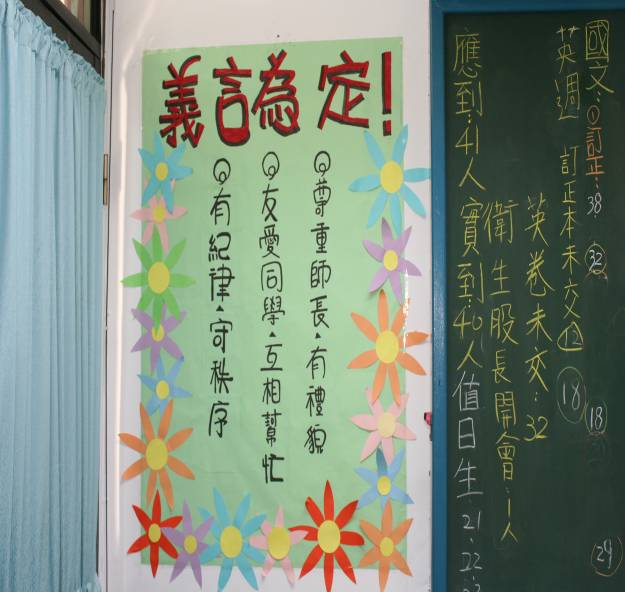 義言為定!
尊重師長,有禮貌
友愛同學,互相幫忙
有紀律,守秩序
國文:①訂正:38
32
18
29
英週 訂正本未交 12
18
英卷未交:32
衛生股長開會:1人
應到:41人 實到:40人 值日生 21、22、23